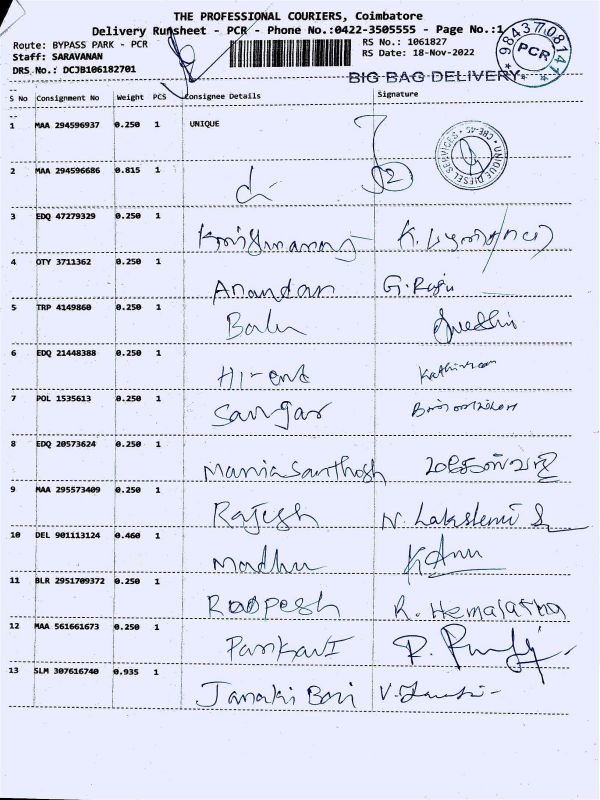 THE PROFESSIONAL COURIERS, Coimbatore
Delivery Runsheet - PCR - Phone No.:0422-3505555 - Page No.:1
Route: BYPASS PARK - PCR
RS No.: 1061827
Staff: SARAVANAN
RS Date: 18-Nov-2022
DRS No.: DCJB106182701
BIG BAG DELIVERY
*9843708141*
PCR
S No Consignment No Weight PCS Consignee Details Signature
1 MAA 294596937 0.250 1 UNIQUE
UNIQUE DIESEL SERVICES * CBE-45 *
2 MAA 294596686 0.815 1
3 EDQ 47279329 0.250 1
4 OTY 3711362 0.250 1 Anandan G. Raju
5 TRP 4149860 0.250 1 Balu
6 EDQ 21448388 0.250 1
7 POL 1535613 0.250 1 Sangar
8 EDQ 20573624 0.250 1 Mania Santhosh
9 MAA 295573409 0.250 1 Rajesh N. Lakshmi
10 DEL 901113124 0.460 1 Madhu
11 BLR 2951709372 0.250 1 Roopesh R. Hemalatha
12 MAA 561661673 0.250 1 Parkavi
13 SLM 307616740 0.935 1 Janaki Bari